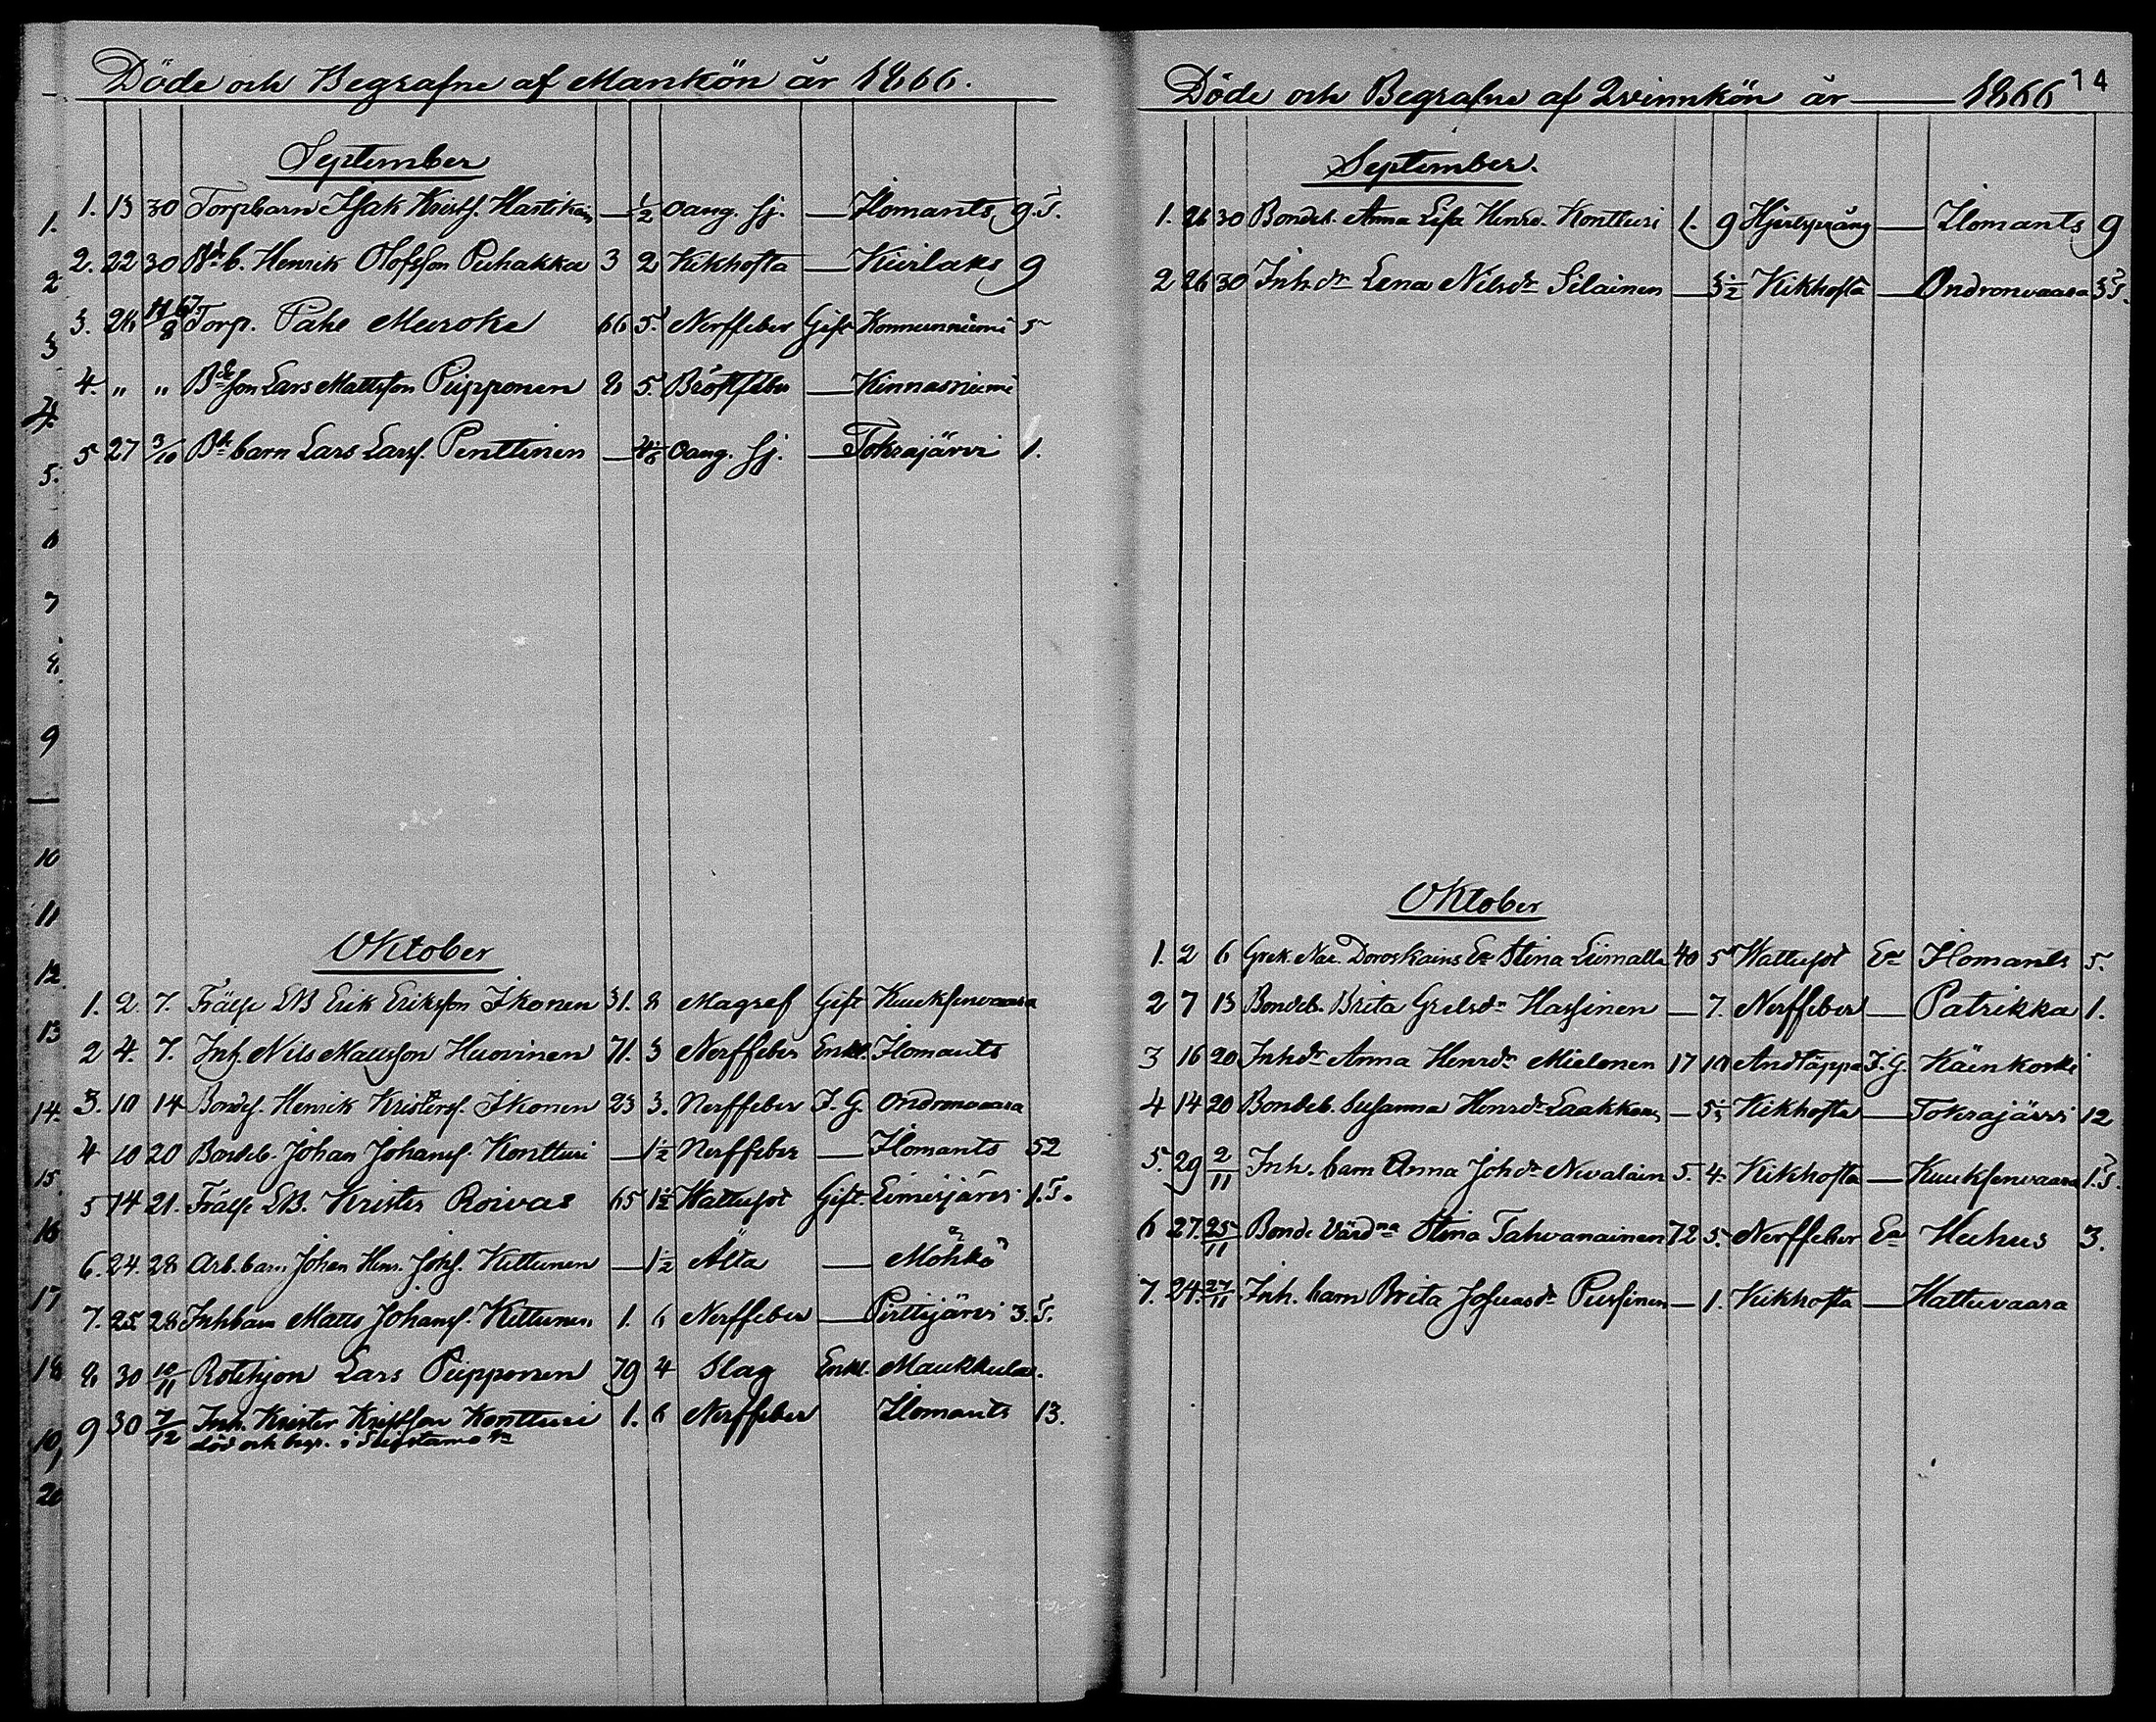 Döde och Begrafne af Mankön år 1866.
September
1. 13 30 Torpbarn Isak Kristf. Hartikain — 1/2 oang. sj. — Ilomants 9.T.
2. 22 30 Bd b. Henrik Olofsson Puhakka 3 2 Kikhosta — Kuilaks 9
3. 28 Torp. Pahe Muroke 66 5. Nerffeber Gift Konnunniemi 5
4. " " Bde son Lars Mattsson Piipponen 8 5. Bröstfeber — Kinnasniemi
5 27 3/10 Bd barn Lars Larsf. Penttinen — oang. sj. — Tokrajärvi 1.
Oktober
1. 2. 7. Frälse LB Erik Eriksson Ikonen 31. 8 Magref Gift Kuuksenvaara
2 4. 7. Inh. Nils Mattsson Huovinen 71. 3 Nerffeber Enkl. Ilomants
3. 10 14 Bondes. Henrik Kristersf. Ikonen 23 3. Nerffeber J. G. Ondronvaara
4 10 20 Bondeb. Johan Johansf. Kontturi — 1/2 Nerffeber — Ilomants 52
5 14 21. Frälse LB. Krister Roivas 65 1/2 Wattusot Gift. Liimejärvi 1.T.
6. 24. 28 Arb. barn Johan Henr. Johf. Kettunen — 1/2 Älta — Möhkö
7. 25. 28 Inhbarn Matts Johansf. Kettunen 1. 6 Nerffeber — Pirttijärvi 3.T.
8 30 10/11 Rotehjon Lars Piipponen 79 4 Slag Enkl. Maukkula.
9 30 7/12 Inh. Krister Kristsson Kontturi 1. 6 Nerffeber Ilomants 13.
död och begr. i
Döde och Begrafne af Qvinnkön år — 1866
14
September.
1. 26 30 Bondeb. Anna Lisa Henrd. Kontturi 1. 9 Hjertsprång — Ilomants 9
2 26 30 Inh. dr Lena Nilsdr Silainen — 3/2 Kikhosta — Ondronvaara 3T.
Oktober
1. 2 6 Grek. Nar. Doroskains Ea Stina Liimatta 40 5 Wattusot Ea Ilomants 5.
2 7 13 Bondeb. Brita Grelsdr Hassinen — 7. Nerffeber — Patrikka 1.
3 16 20 Inhdr Anna Henrdr Mielonen 17 10 Andtäppa J. G. Käenkoski
4 14 20 Bondeb. Susanna Henrdr Laakkon — Kikhosta — Tokrajärvi 12
5. 29 2/11 Inh. barn Anna Johdr Nevalain 5. 4. Kikhosta — Kuuksenvaara 1.T.
6 27. 25/11 Bonde Värdna Stina Tahvanainen 72 5. Nerffeber Ea Huhus 3.
7. 24. 27/11 Inh. barn Brita Josuasdr Pussinen — 1. Kikhosta — Hattuvaara
1.
2
3
4.
5.
6
7
8
9
10
11
12
13
14.
15.
16
17
18
19
20